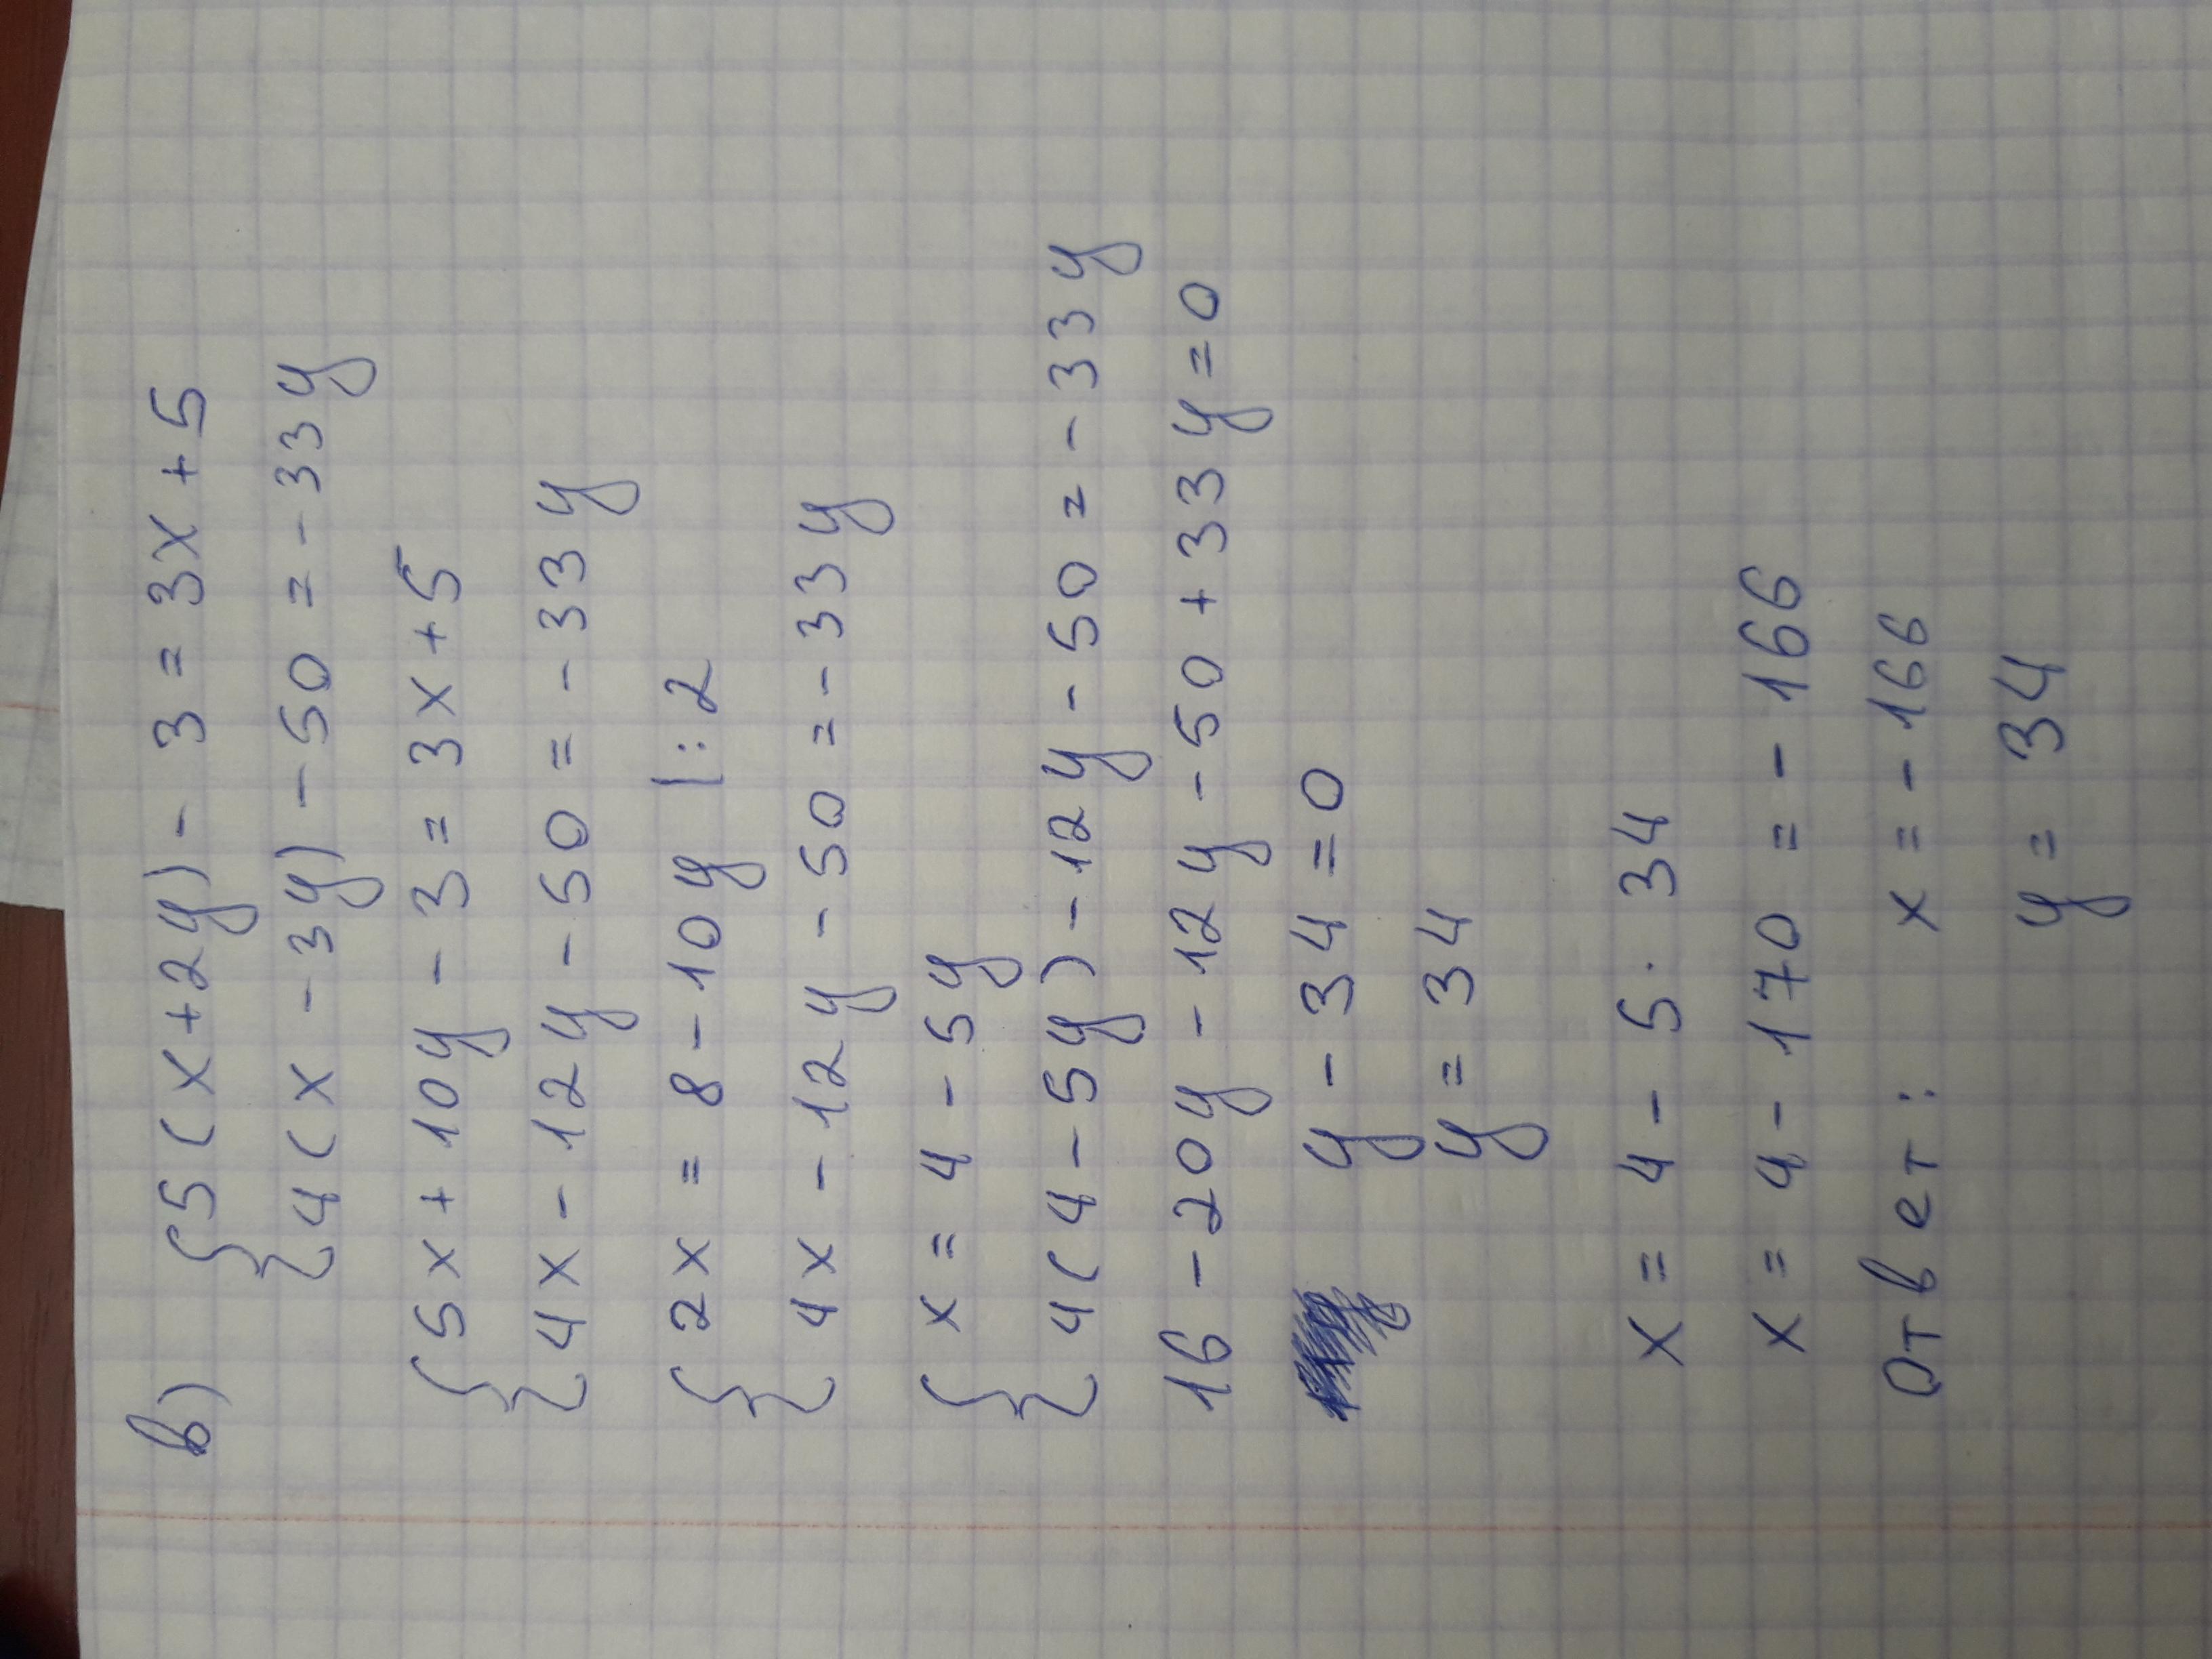 в) {5(x+2y)-3=3x+5
{4(x-3y)-50=-33y
{5x+10y-3=3x+5
{4x-12y-50=-33y
{2x=8-10y |:2
{4x-12y-50=-33y
{x=4-5y
{4(4-5y)-12y-50=-33y
16-20y-12y-50+33y=0
y-34=0
y=34
x=4-5·34
x=4-170=-166
Ответ: x=-166
y=34